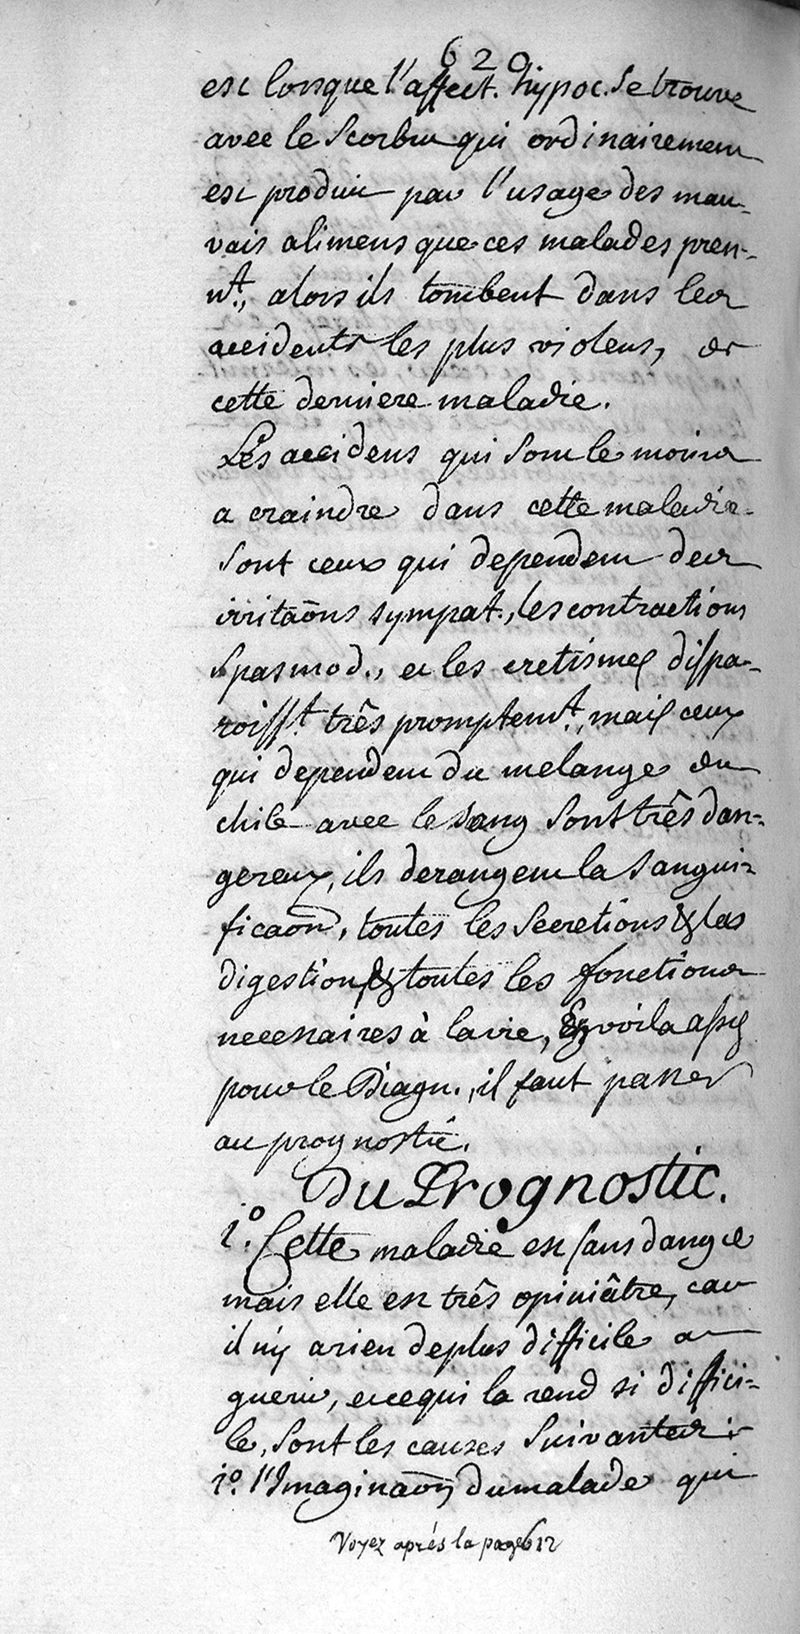 620
est lorsque l'affect. hypoc. se trouve
avec le scorbut qui ordinairement
est produit par l'usage des mau-
vais alimens que ces malades pren-
nt., alors ils tombent dans les
accidents les plus violens, de
cette derniere maladie.
Les accidens qui sont le moins
a craindre dans cette maladie
sont ceux qui dependent des
irritaõns sympat., les contractions
spasmod., et les eretismes dispa-
roisst. très promptemt., mais ceux
qui dependent du melange du
chile avec le sang sont très dan-
gereux, ils derangent la sangui-
ficaõn, toutes les secretions & les
digestions & toutes les fonctions
necessaires à la vie, En voila assez
pour le Diagn., il faut passer
au prognostic.
Du Prognostic.
1o. Cette maladie est sans danger
mais elle est très opiniâtre, car
il n'y a rien de plus difficile a
guerir, et ce qui la rend si diffici-
le, sont les causes suivantes :
1o. l'Imaginaõn du malade qui
Voyez aprés la page 612